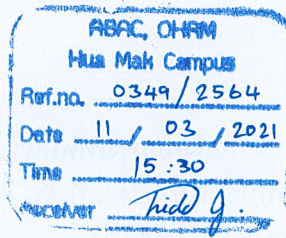 ABAC, OHRM
Hua Mak Campus
Ref.no. 0349/2564
Date 11 / 03 / 2021
Time 15:30
Receiver